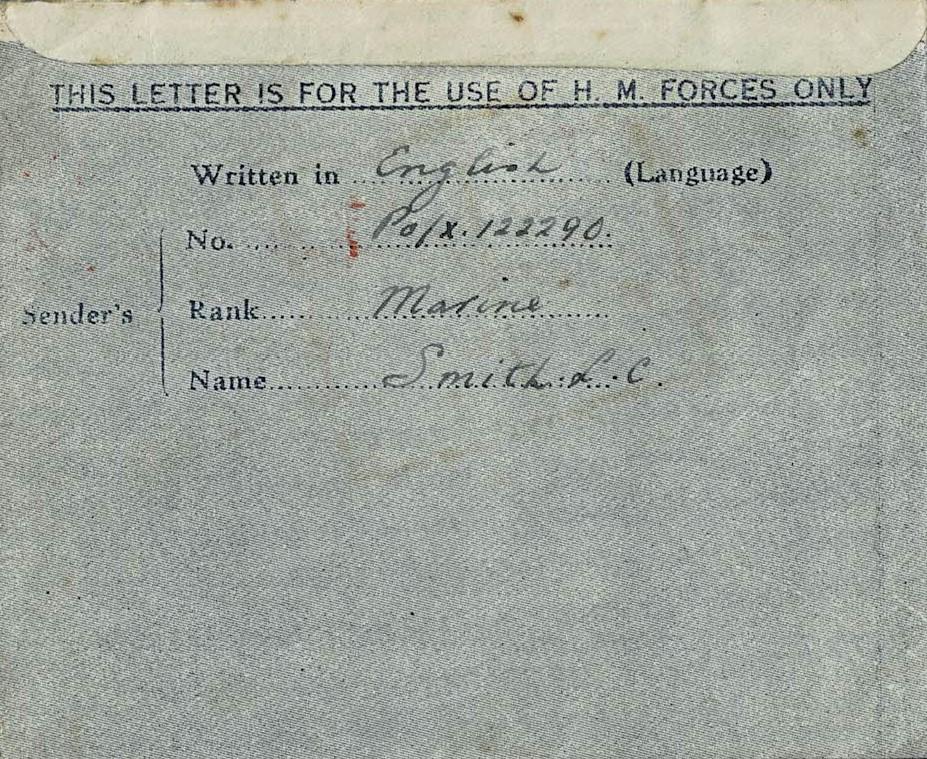 THIS LETTER IS FOR THE USE OF H. M. FORCES ONLY
Written in English (Language)
No. Po/x. 122290.
Sender's
Rank Marine
Name Smith. L. C.